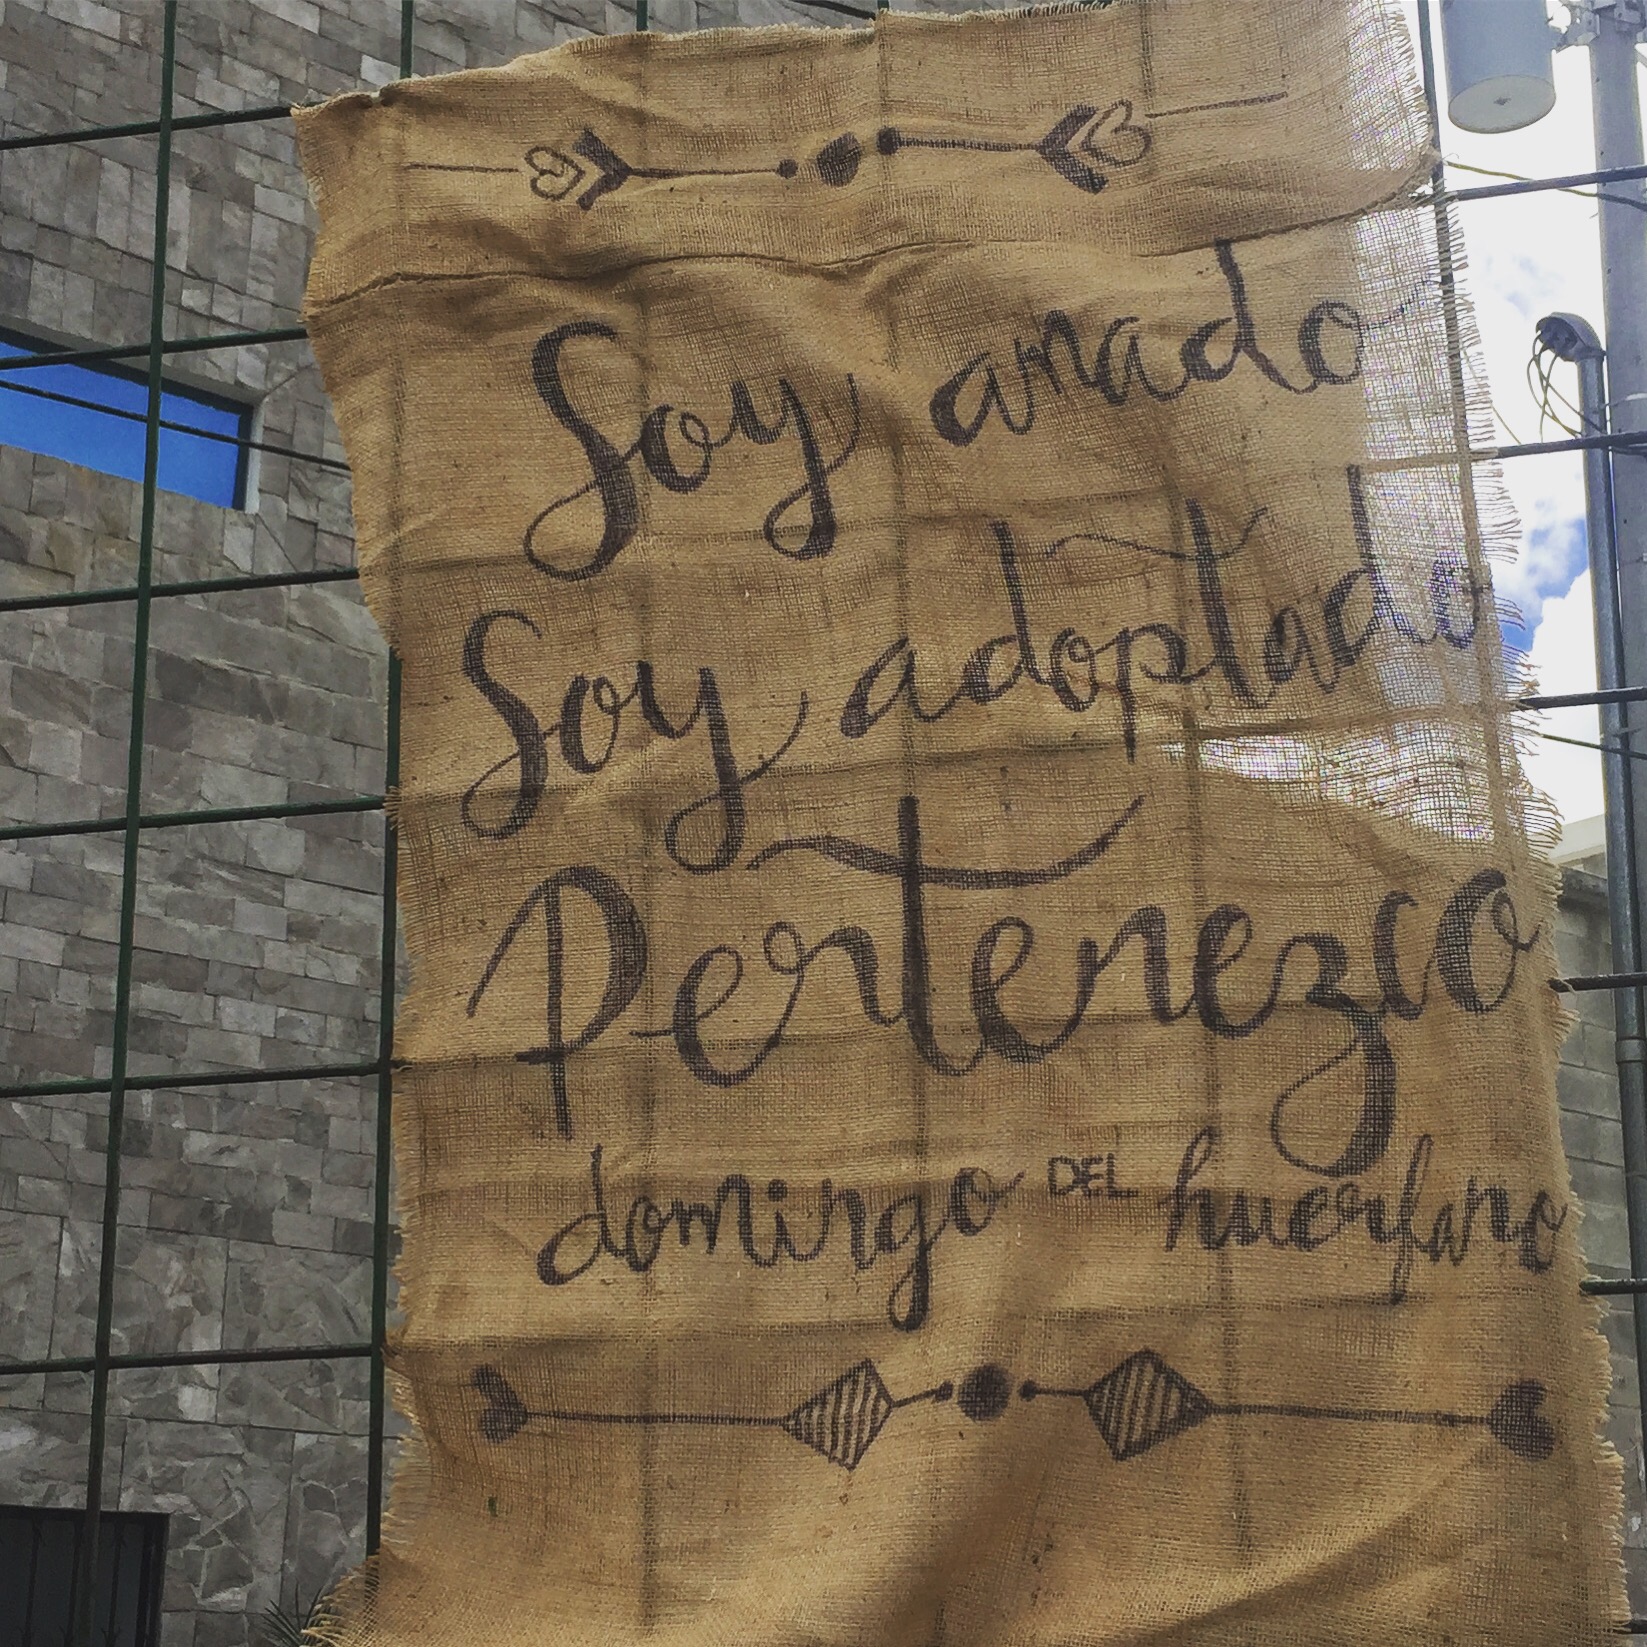 Soy amado
Soy adoptado
Pertenezco
domingo DEL huerfano